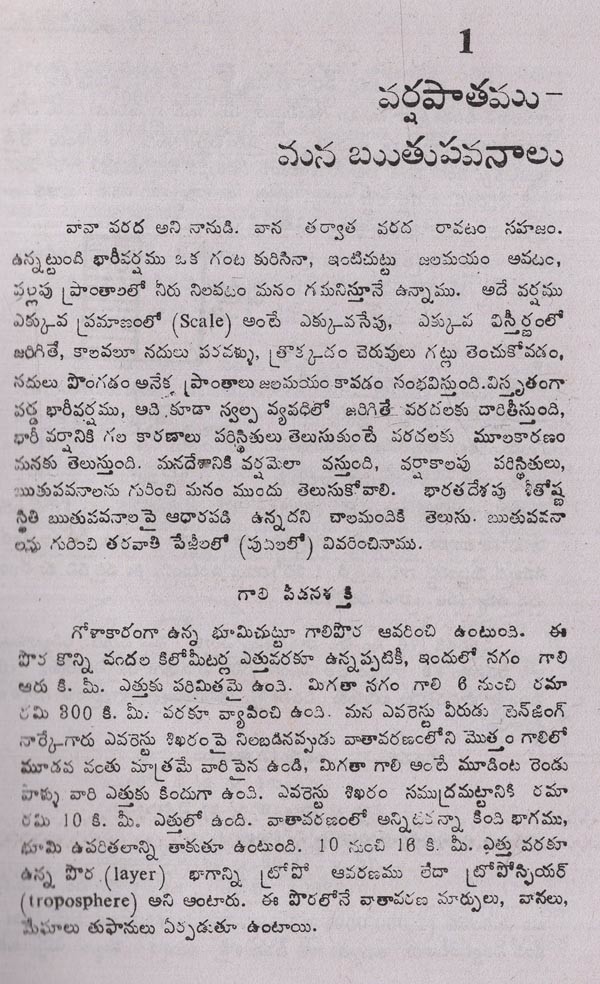 1
వర్షపాతము –
మన ఋతుపవనాలు
వావా వరద అని నానుడి. వాన తర్వాత వరద రావటం సహజం.
ఉన్నట్టుంది భారీవర్షము ఒక గంట కురిసినా, ఇంటిచుట్టు జలమయం అవటం,
పల్లపు ప్రాంతాలలో నీరు నిలవటం మనం గమనిస్తూనే ఉన్నాము. అదే వర్షము
ఎక్కువ ప్రమాణంలో (Scale) అంటే ఎక్కువసేపు, ఎక్కువ విస్తీర్ణంలో
జరిగితే, కాలవలూ నదులు పరవళ్ళు, త్రొక్కడం చెరువులు గట్లు తెంచుకోవడం,
నదులు పొంగడం అనేక ప్రాంతాలు జలమయం కావడం సంభవిస్తుంది. విస్తృతంగా
పడ్డ భారీవర్షము, అది కూడా స్వల్ప వ్యవధిలో జరిగితే వరదలకు దారితీస్తుంది,
భారీ వర్షానికి గల కారణాలు పరిస్థితులు తెలుసుకుంటే వరదలకు మూలకారణం
మనకు తెలుస్తుంది. మనదేశానికి వర్షమెలా వస్తుంది, వర్షాకాలపు పరిస్థితులు,
ఋతుపవనాలను గురించి మనం ముందు తెలుసుకోవాలి. భారతదేశపు శీతోష్ణ
స్థితి ఋతుపవనాలపై ఆధారపడి ఉన్నదని చాలమందికి తెలుసు. ఋతుపవనా
లను గురించి తరవాతి పేజీలలో (పుటలలో) వివరించినాము.
గాలి పీడనశక్తి
గోళాకారంగా ఉన్న భూమిచుట్టూ గాలిపొర ఆవరించి ఉంటుంది. ఈ
పొర కొన్ని వందల కిలోమీటర్ల ఎత్తువరకూ ఉన్నప్పటికీ, ఇందులో సగం గాలి
ఆరు కి. మీ. ఎత్తుకు పరిమితమై ఉంది. మిగతా సగం గాలి 6 నుంచి రమా
రమి 300 కి. మీ. వరకూ వ్యాపించి ఉంది. మన ఎవరెస్టు వీరుడు టెన్‌జింగ్
నార్కేగారు ఎవరెస్టు శిఖరంపై నిలబడినప్పుడు వాతావరణంలోని మొత్తం గాలిలో
మూడవ వంతు మాత్రమే వారిపైన ఉండి, మిగతా గాలి అంటే మూడింట రెండు
వాళ్ళు వారి ఎత్తుకు కిందుగా ఉంది. ఎవరెస్టు శిఖరం సముద్రమట్టానికి రమా
రమి 10 కి. మీ. ఎత్తులో ఉంది. వాతావరణంలో అన్నిటికన్నా కింది భాగము,
భూమి ఉపరితలాన్ని తాకుతూ ఉంటుంది. 10 నుంచి 16 కి. మీ. ఎత్తు వరకూ
ఉన్న పొర (layer) భాగాన్ని ట్రోపో ఆవరణము లేదా ట్రోపోస్ఫియర్
(troposphere) అని అంటారు. ఈ పొరలోనే వాతావరణ మార్పులు, వానలు,
మేఘాలు తుఫానులు ఏర్పడుతూ ఉంటాయి.